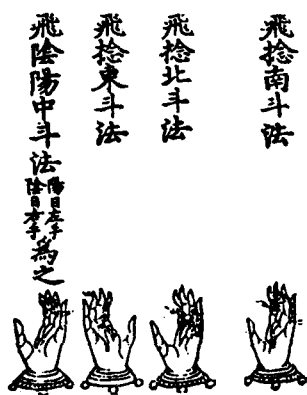 飛捻南斗法
飛捻北斗法
飛捻東斗法
飛陰陽中斗法陽日左手陰日右手為之